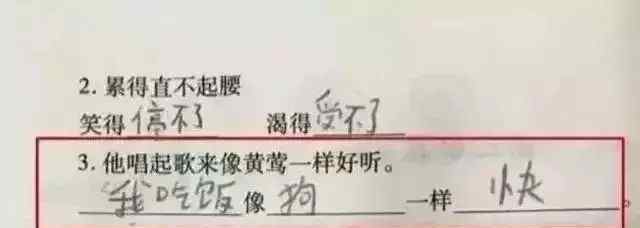 2. 累得直不起腰
笑得停不了 渴得受不了
3. 他唱起歌来像黄莺一样好听。
我吃饭像狗一样快。